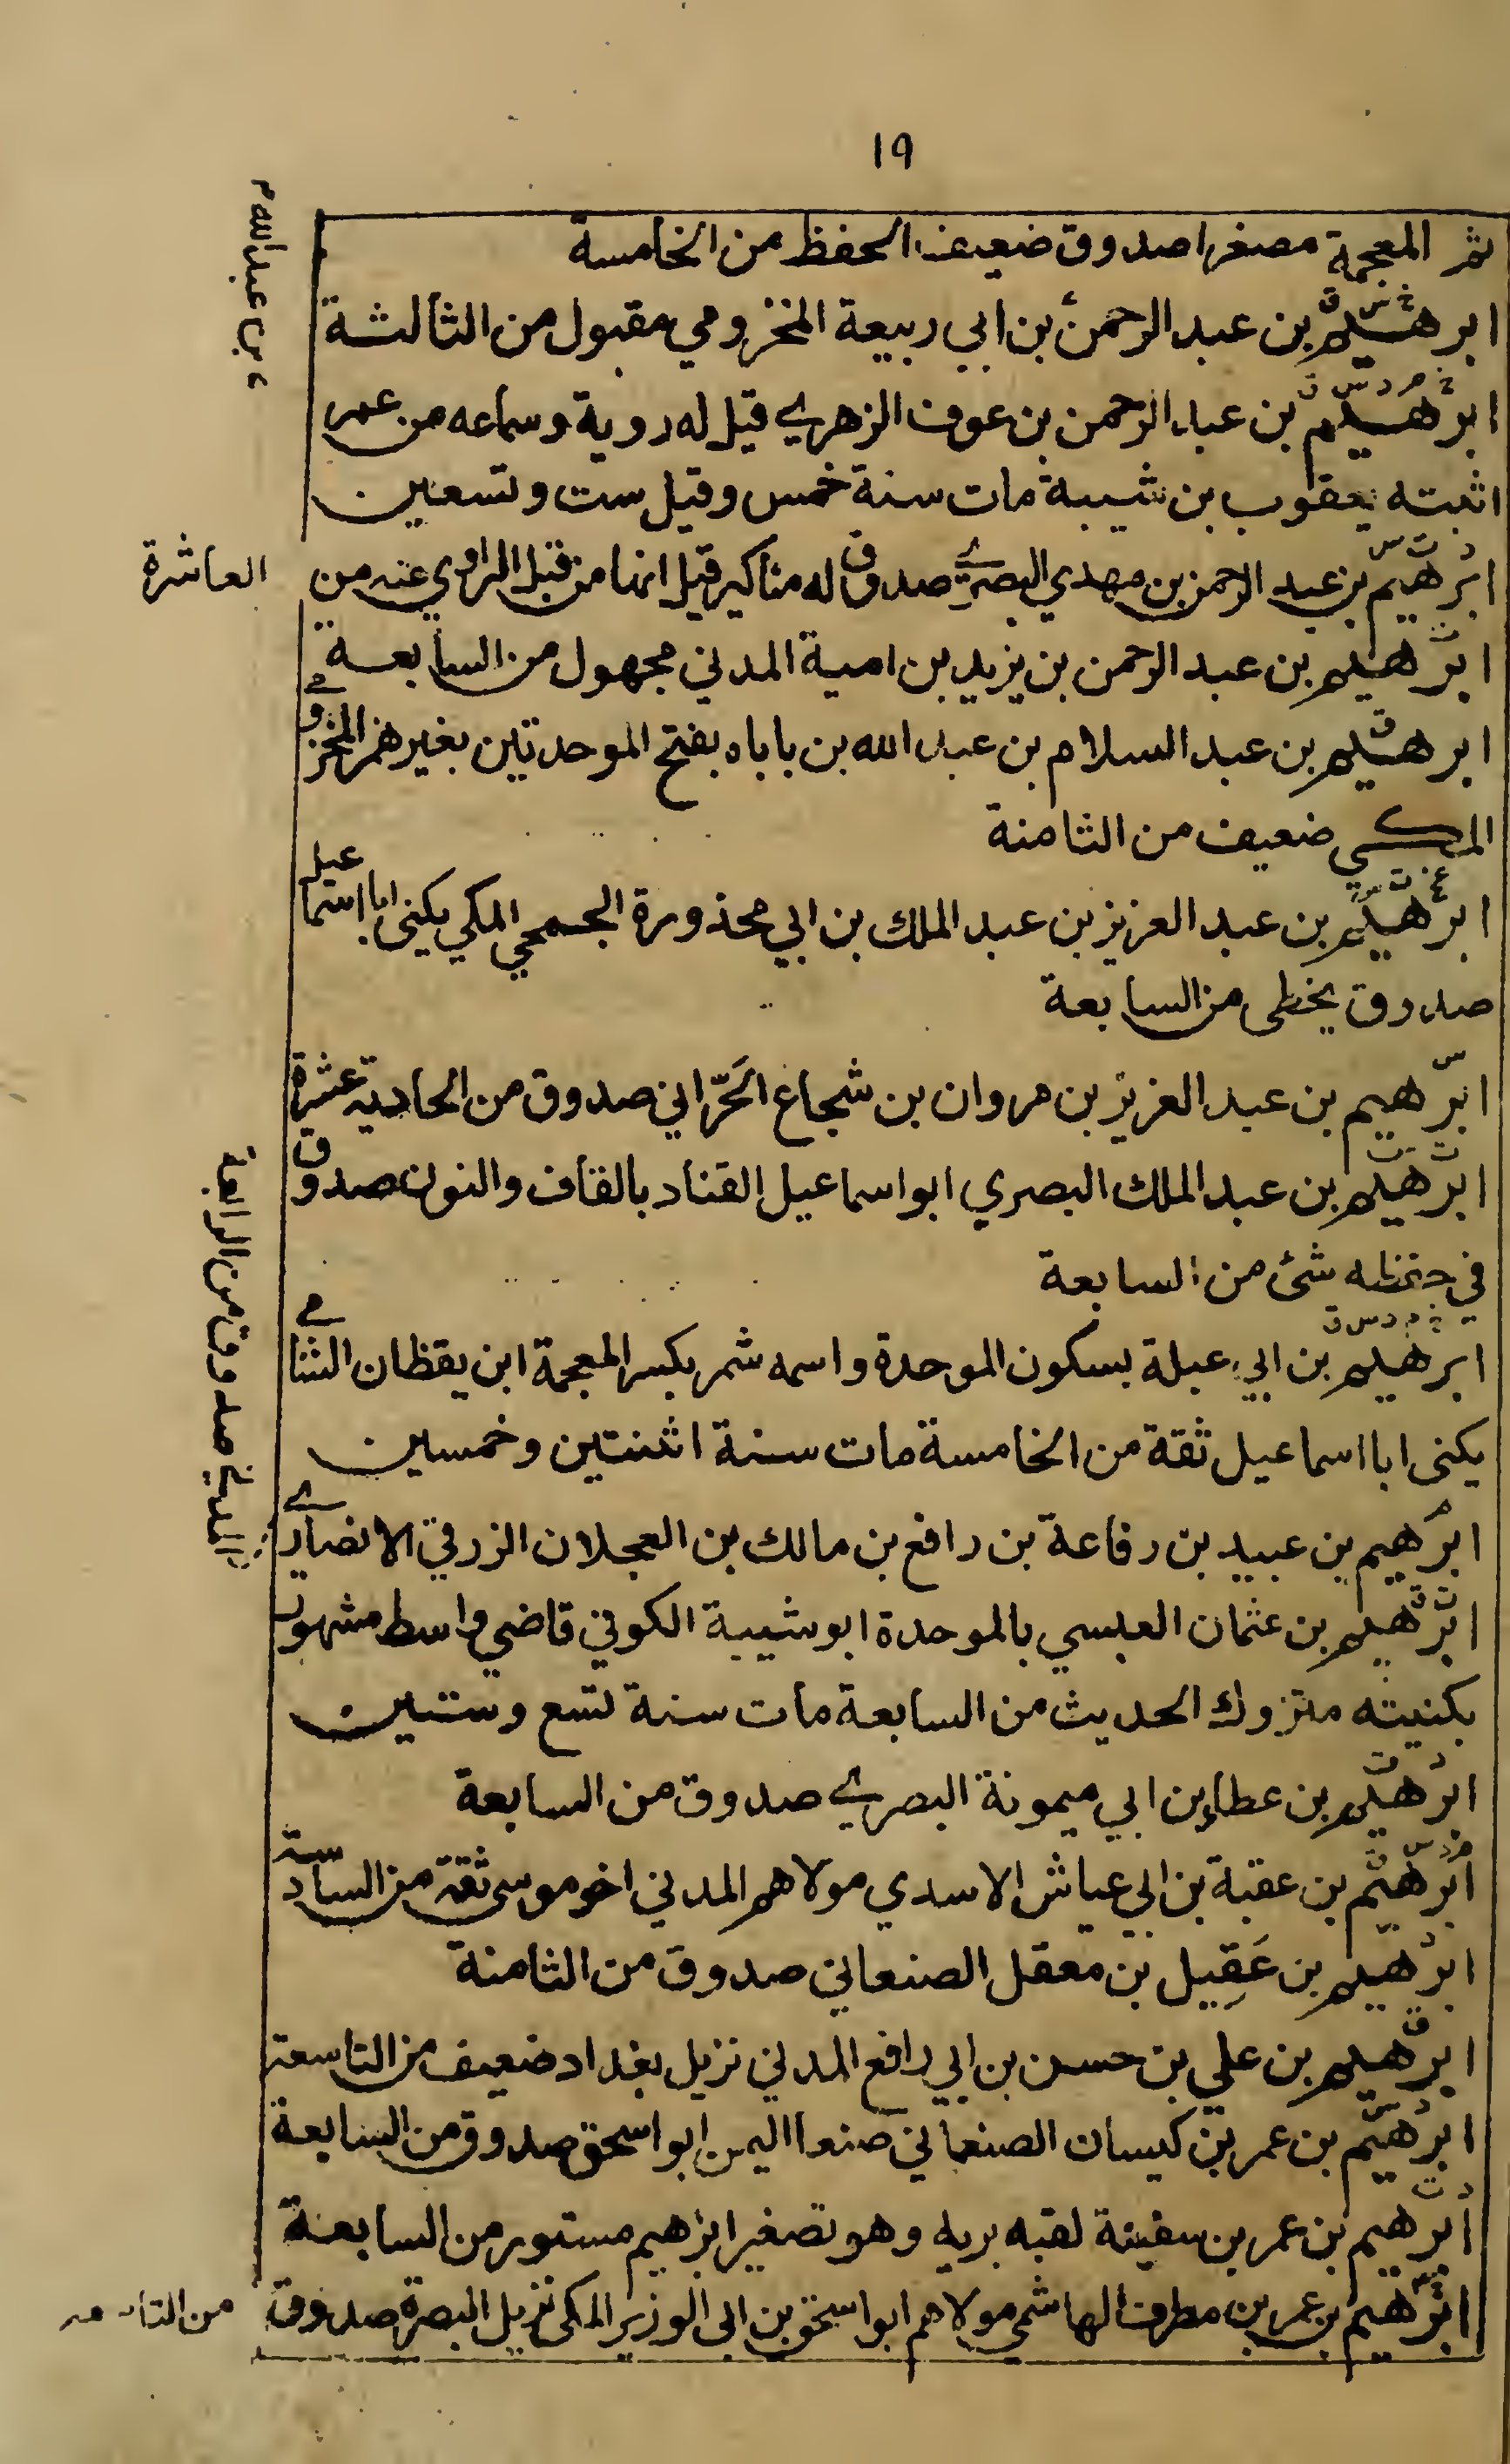 ١٩
ثم المعجمة مصغرا صدوق ضعيف الحفظ من الخامسة
خ س ق
ابرهيم بن عبد الرحمن بن ابي ربيعة المخزومي مقبول من الثالثة
بن عبد الله م
خ م د س ق
ابرهيم بن عبد الرحمن بن عوف الزهري قيل له روية وسماعه من عمر
اثبته يعقوب بن شيبة مات سنة خمس وقيل ست وتسعين
ابرهيم بن عبد الرحمن بن مهدي البصري صدوق له مناكير قيل انها من قبل الراوي عنه من العاشرة
ت
ابرهيم بن عبد الرحمن بن يزيد بن امية المدني مجهول من السابعة
ق
ابرهيم بن عبد السلام بن عبد الله بن باباه بفتح الموحدتين بغير همز المخزومي
المكي ضعيف من الثامنة
عخ ت س
ابرهيم بن عبد العزيز بن عبد الملك بن ابي محذورة الجمحي المكي يكنى ابا اسماعيل
صدوق يخطى من السابعة
س
ابرهيم بن عبد العزيز بن مروان بن شجاع الحَرّاني صدوق من الحادية عشرة
ابرهيم بن عبد الملك البصري ابو اسماعيل القناد بالقاف والنون صدوق
في حفظه شئ من السابعة
خ م د س ق
ابرهيم بن ابي عبلة بسكون الموحدة واسمه شمر بكسر المعجمة ابن يقظان الشامي
يكنى ابا اسماعيل ثقة من الخامسة مات سنة اثنتين وخمسين
م
ابرهيم بن عبيد بن رفاعة بن رافع بن مالك بن العجلان الزرقي الانصاري
المدني صدوق من الرابعة
ت ق
ابرهيم بن عثمان العبسي بالموحدة ابو شيبة الكوفي قاضي واسط مشهور
بكنيته متروك الحديث من السابعة مات سنة تسع وستين
ابرهيم بن عطاء بن ابي ميمونة البصري صدوق من السابعة
م د س ق
ابرهيم بن عقبة بن ابي عياش الاسدي مولاهم المدني اخو موسى ثقة من السادسة
د
ابرهيم بن عَقِيل بن معقل الصنعاني صدوق من الثامنة
ق
ابرهيم بن علي بن حسن بن ابي رافع المدني نزيل بغداد ضعيف من التاسعة
د س
ابرهيم بن عمر بن كيسان الصنعاني صنعا اليمن ابو اسحق صدوق من السابعة
د ت
ابرهيم بن عمر بن سفينة لقبه بريه وهو تصغير ابرهيم مستور من السابعة
ابرهيم بن عمر بن مطرف الهاشمي مولاهم ابو اسحق بن ابي الوزير المكي نزيل البصرة صدوق من التاسعة